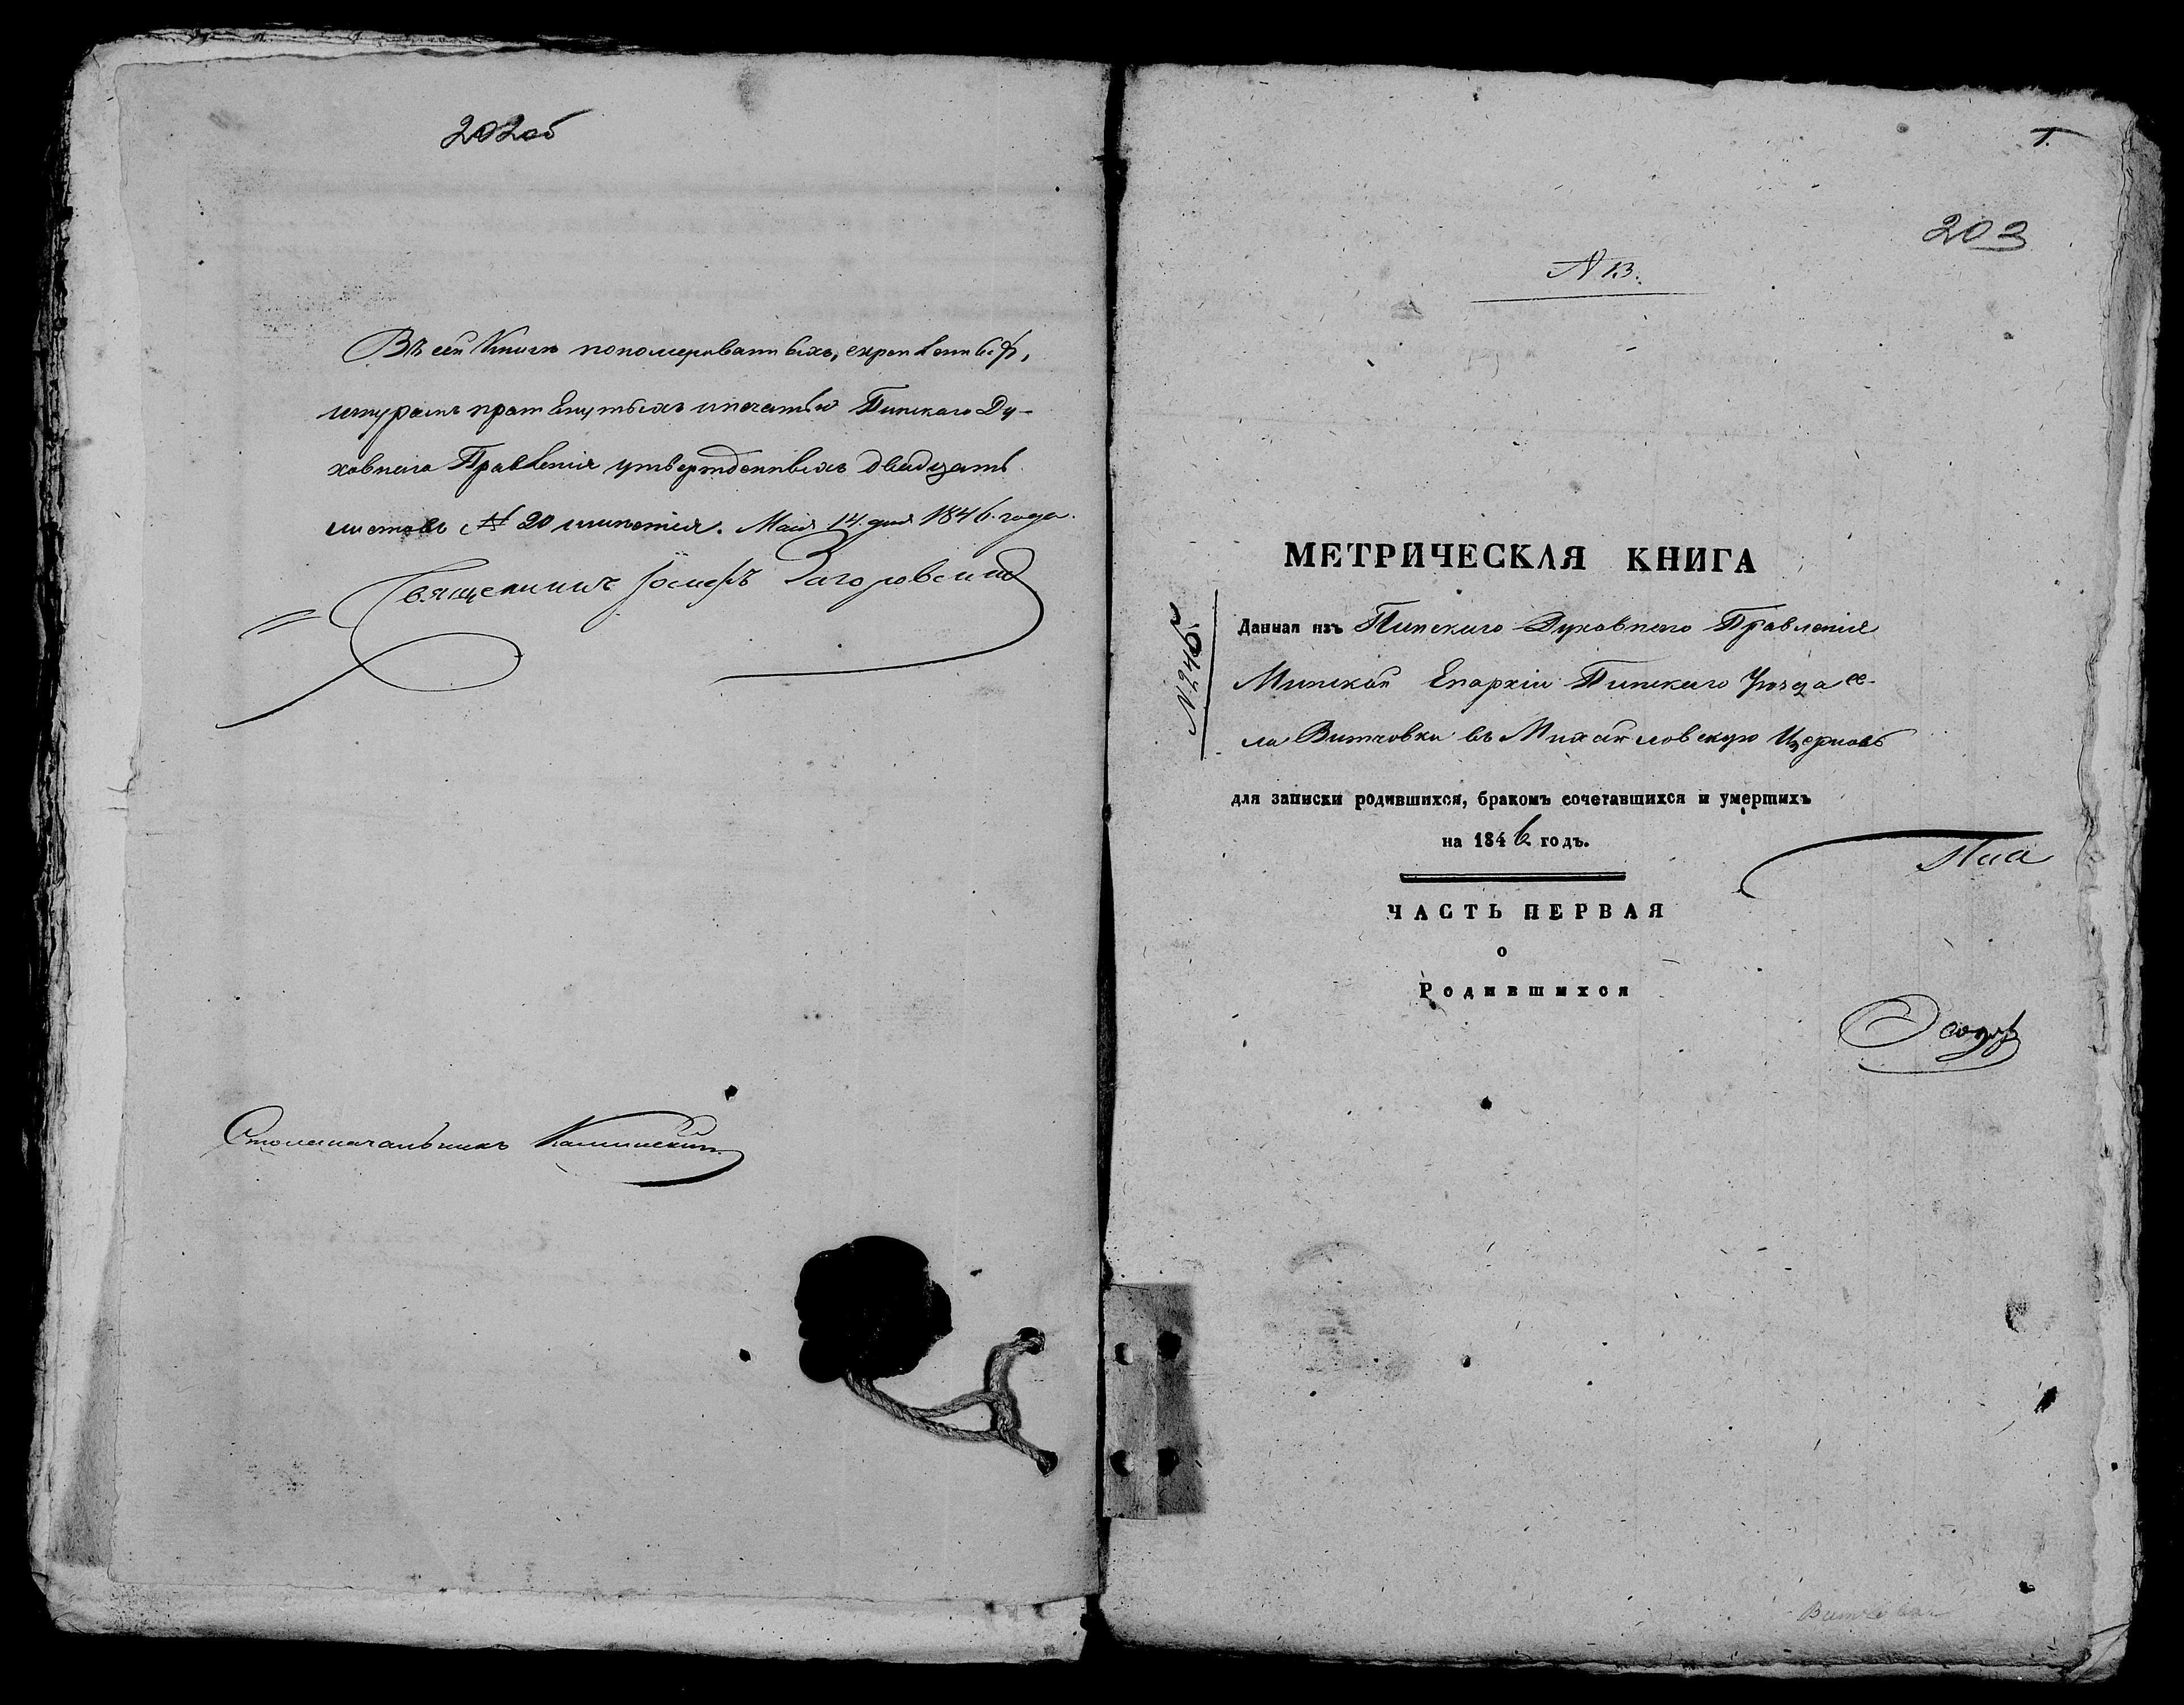 202об
Въ сей Книгѣ пономерованныхъ, скрѣпленныхъ,
шнуромъ протянутыхъ и печатью Пинскаго Ду-
ховнаго Правленія утвержденныхъ двадцать
листовъ № 20 имѣется. Мая 14 дня 1846 года.
Священникъ Іосифъ Загоровскій
Столоначальникъ Калинскій
1.
203
N 13.
МЕТРИЧЕСКАЯ КНИГА
N 246
Данная изъ Пинскаго Духовнаго Правленія
Минской Епархіи Пинскаго Уѣзда се-
ла Витчовки въ Михайловскую Церковь
для записки родившихся, бракомъ сочетавшихся и умершихъ
на 1846 годъ.
ЧАСТЬ ПЕРВАЯ
о
Родившихся
Витчовка